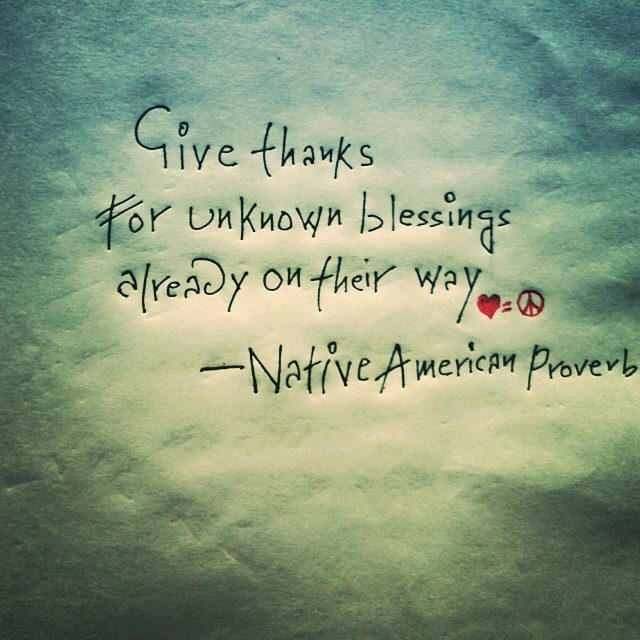 Give thanks
For unknown blessings
already on their way ♥=☮
—Native American Proverb